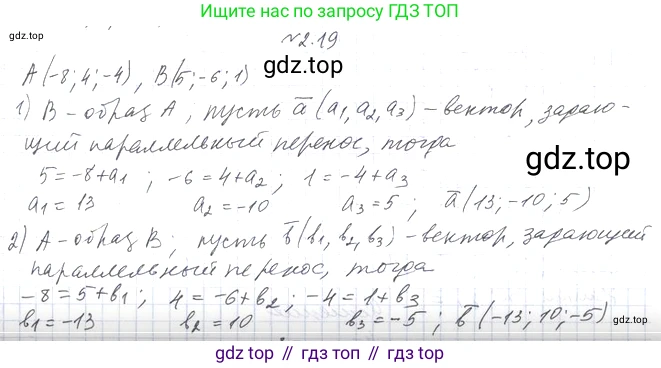 Ищите нас по запросу ГДЗ ТОП
№2.19
gdz.top
A(-8; 4; -4), B(5; -6; 1)
gdz.top
1) B - образ A, пусть a̅(a₁, a₂, a₃) - вектор, задаю-
щий параллельный перенос, тогда
gdz.top
5 = -8 + a₁ ; -6 = 4 + a₂ ; 1 = -4 + a₃
a₁ = 13 a₂ = -10 a₃ = 5 ; a̅(13; -10; 5)
2) A - образ B; пусть b̅(b₁, b₂, b₃) - вектор, задающий
параллельный перенос, тогда
-8 = 5 + b₁ ; 4 = -6 + b₂ ; -4 = 1 + b₃
b₁ = -13 b₂ = 10 b₃ = -5 ; b̅(-13; 10; -5)
gdz top // gdz top // gdz top // gdz top